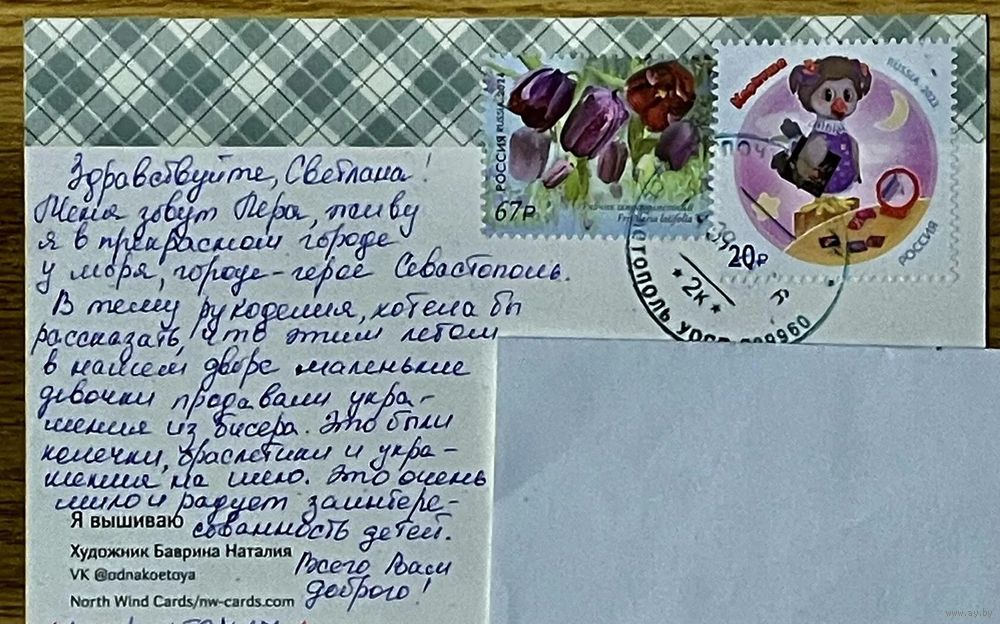 Здравствуйте, Светлана!
Меня зовут Лера, живу
я в прекрасном городе
у моря, городе-герое Севастополь.
В тему рукоделия, хотела бы
рассказать, что этим летом
в нашем дворе маленькие
девочки продавали укра-
шения из бисера. Это были
колечки, браслетики и укра-
шения на шею. Это очень
мило и радует заинтере-
сованность детей.
Всего Вам
доброго!
Я вышиваю
Художник Баврина Наталия
VK @odnakoetoya
North Wind Cards/nw-cards.com
РОССИЯ RUSSIA 2024
67₽
Fritillaria latifolia
RUSSIA 2023
РОССИЯ
20₽
ПОЧ
СТОПОЛЬ
2к
www.ay.by